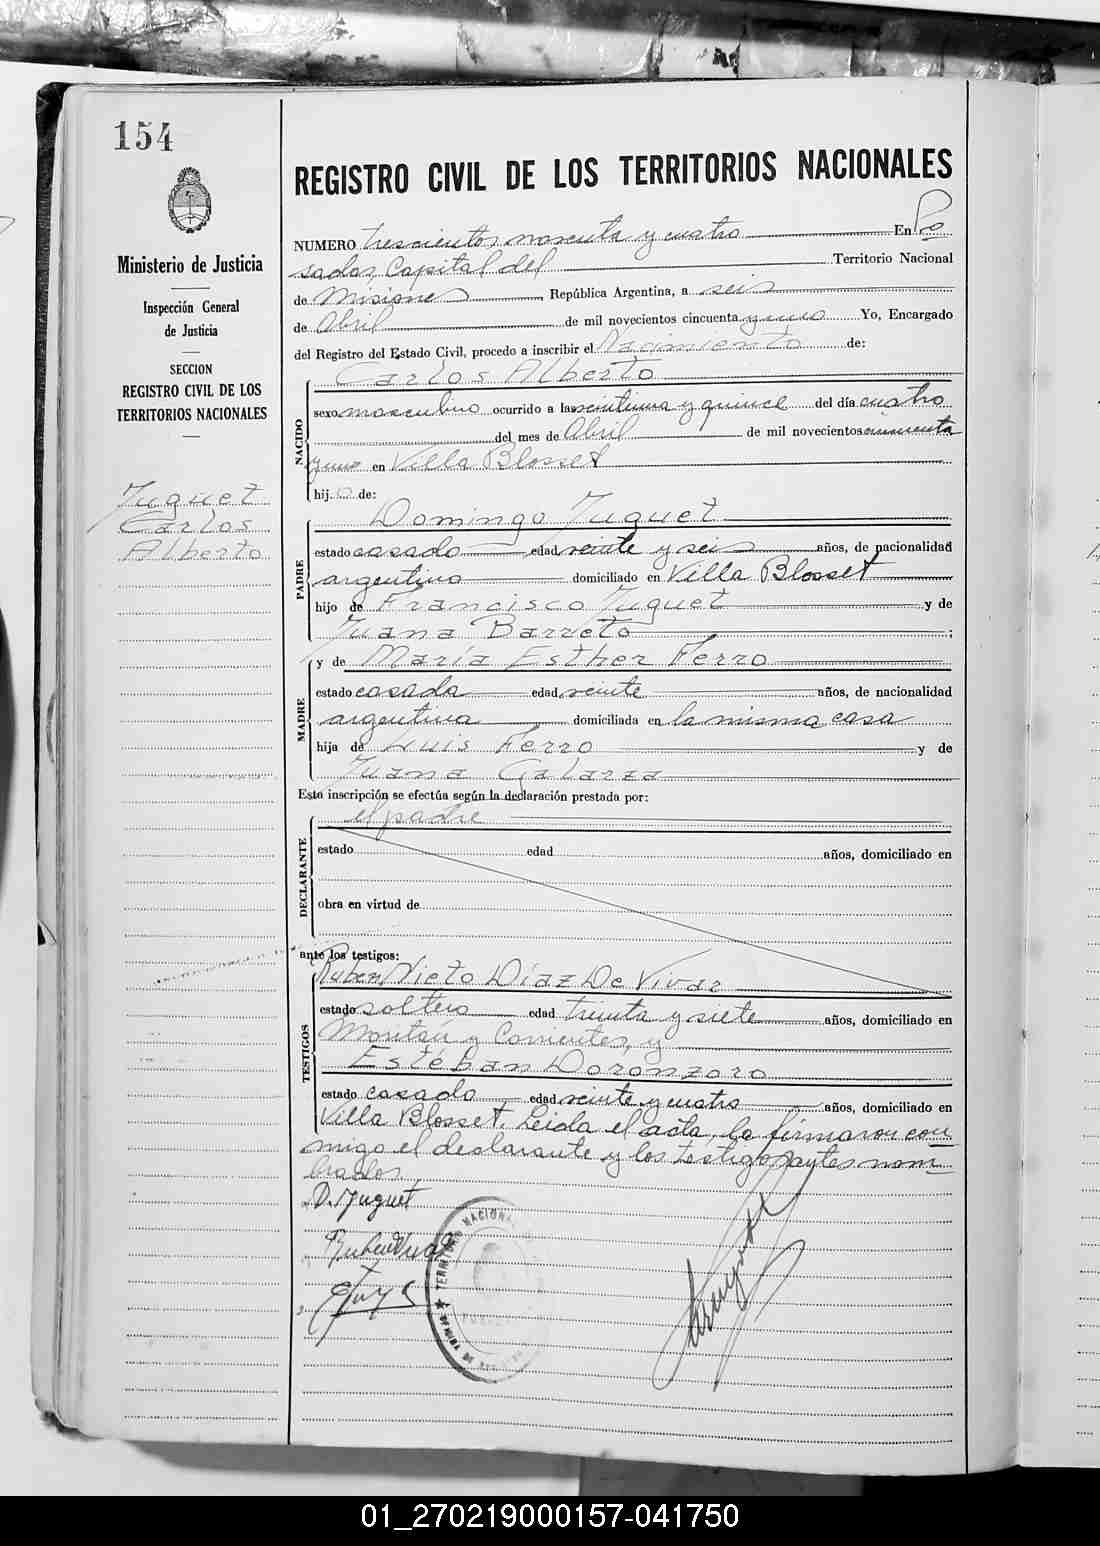 154
Ministerio de Justicia
Inspección General
de Justicia
SECCION
REGISTRO CIVIL DE LOS
TERRITORIOS NACIONALES
Juguet
Carlos
Alberto
REGISTRO CIVIL DE LOS TERRITORIOS NACIONALES
NUMERO trescientos noventa y cuatro En Po
sadas, Capital del Territorio Nacional
de Misiones, República Argentina, a seis
de Abril de mil novecientos cincuenta y uno Yo, Encargado
del Registro del Estado Civil, procedo a inscribir el Nacimiento de:
NACIDO
Carlos Alberto
sexo masculino ocurrido a las veintiuna y quince del día cuatro
del mes de Abril de mil novecientos cincuenta
y uno en Villa Blosset
hijo de:
PADRE
Domingo Juguet
estado casado edad veinte y seis años, de nacionalidad
argentino domiciliado en Villa Blosset
hijo de Francisco Juguet y de
Juana Barreto;
y de María Esther Ferro
MADRE
estado casada edad veinte años, de nacionalidad
argentina domiciliada en la misma casa
hija de Luis Ferro y de
Juana Galarza
Esta inscripción se efectúa según la declaración prestada por:
DECLARANTE
el padre
estado edad años, domiciliado en
obra en virtud de
ante los testigos:
TESTIGOS
Ruben Nieto Díaz De Vivar
estado soltero edad treinta y siete años, domiciliado en
y Corrientes, y
Estéban Doronzoro
estado casado edad veinte y cuatro años, domiciliado en
Villa Blosset. Leida el acta, la firmaron con
migo el declarante y los testigos antes nom
brados.
D. Juguet
TERRITORIO NACIONAL
01_270219000157-041750